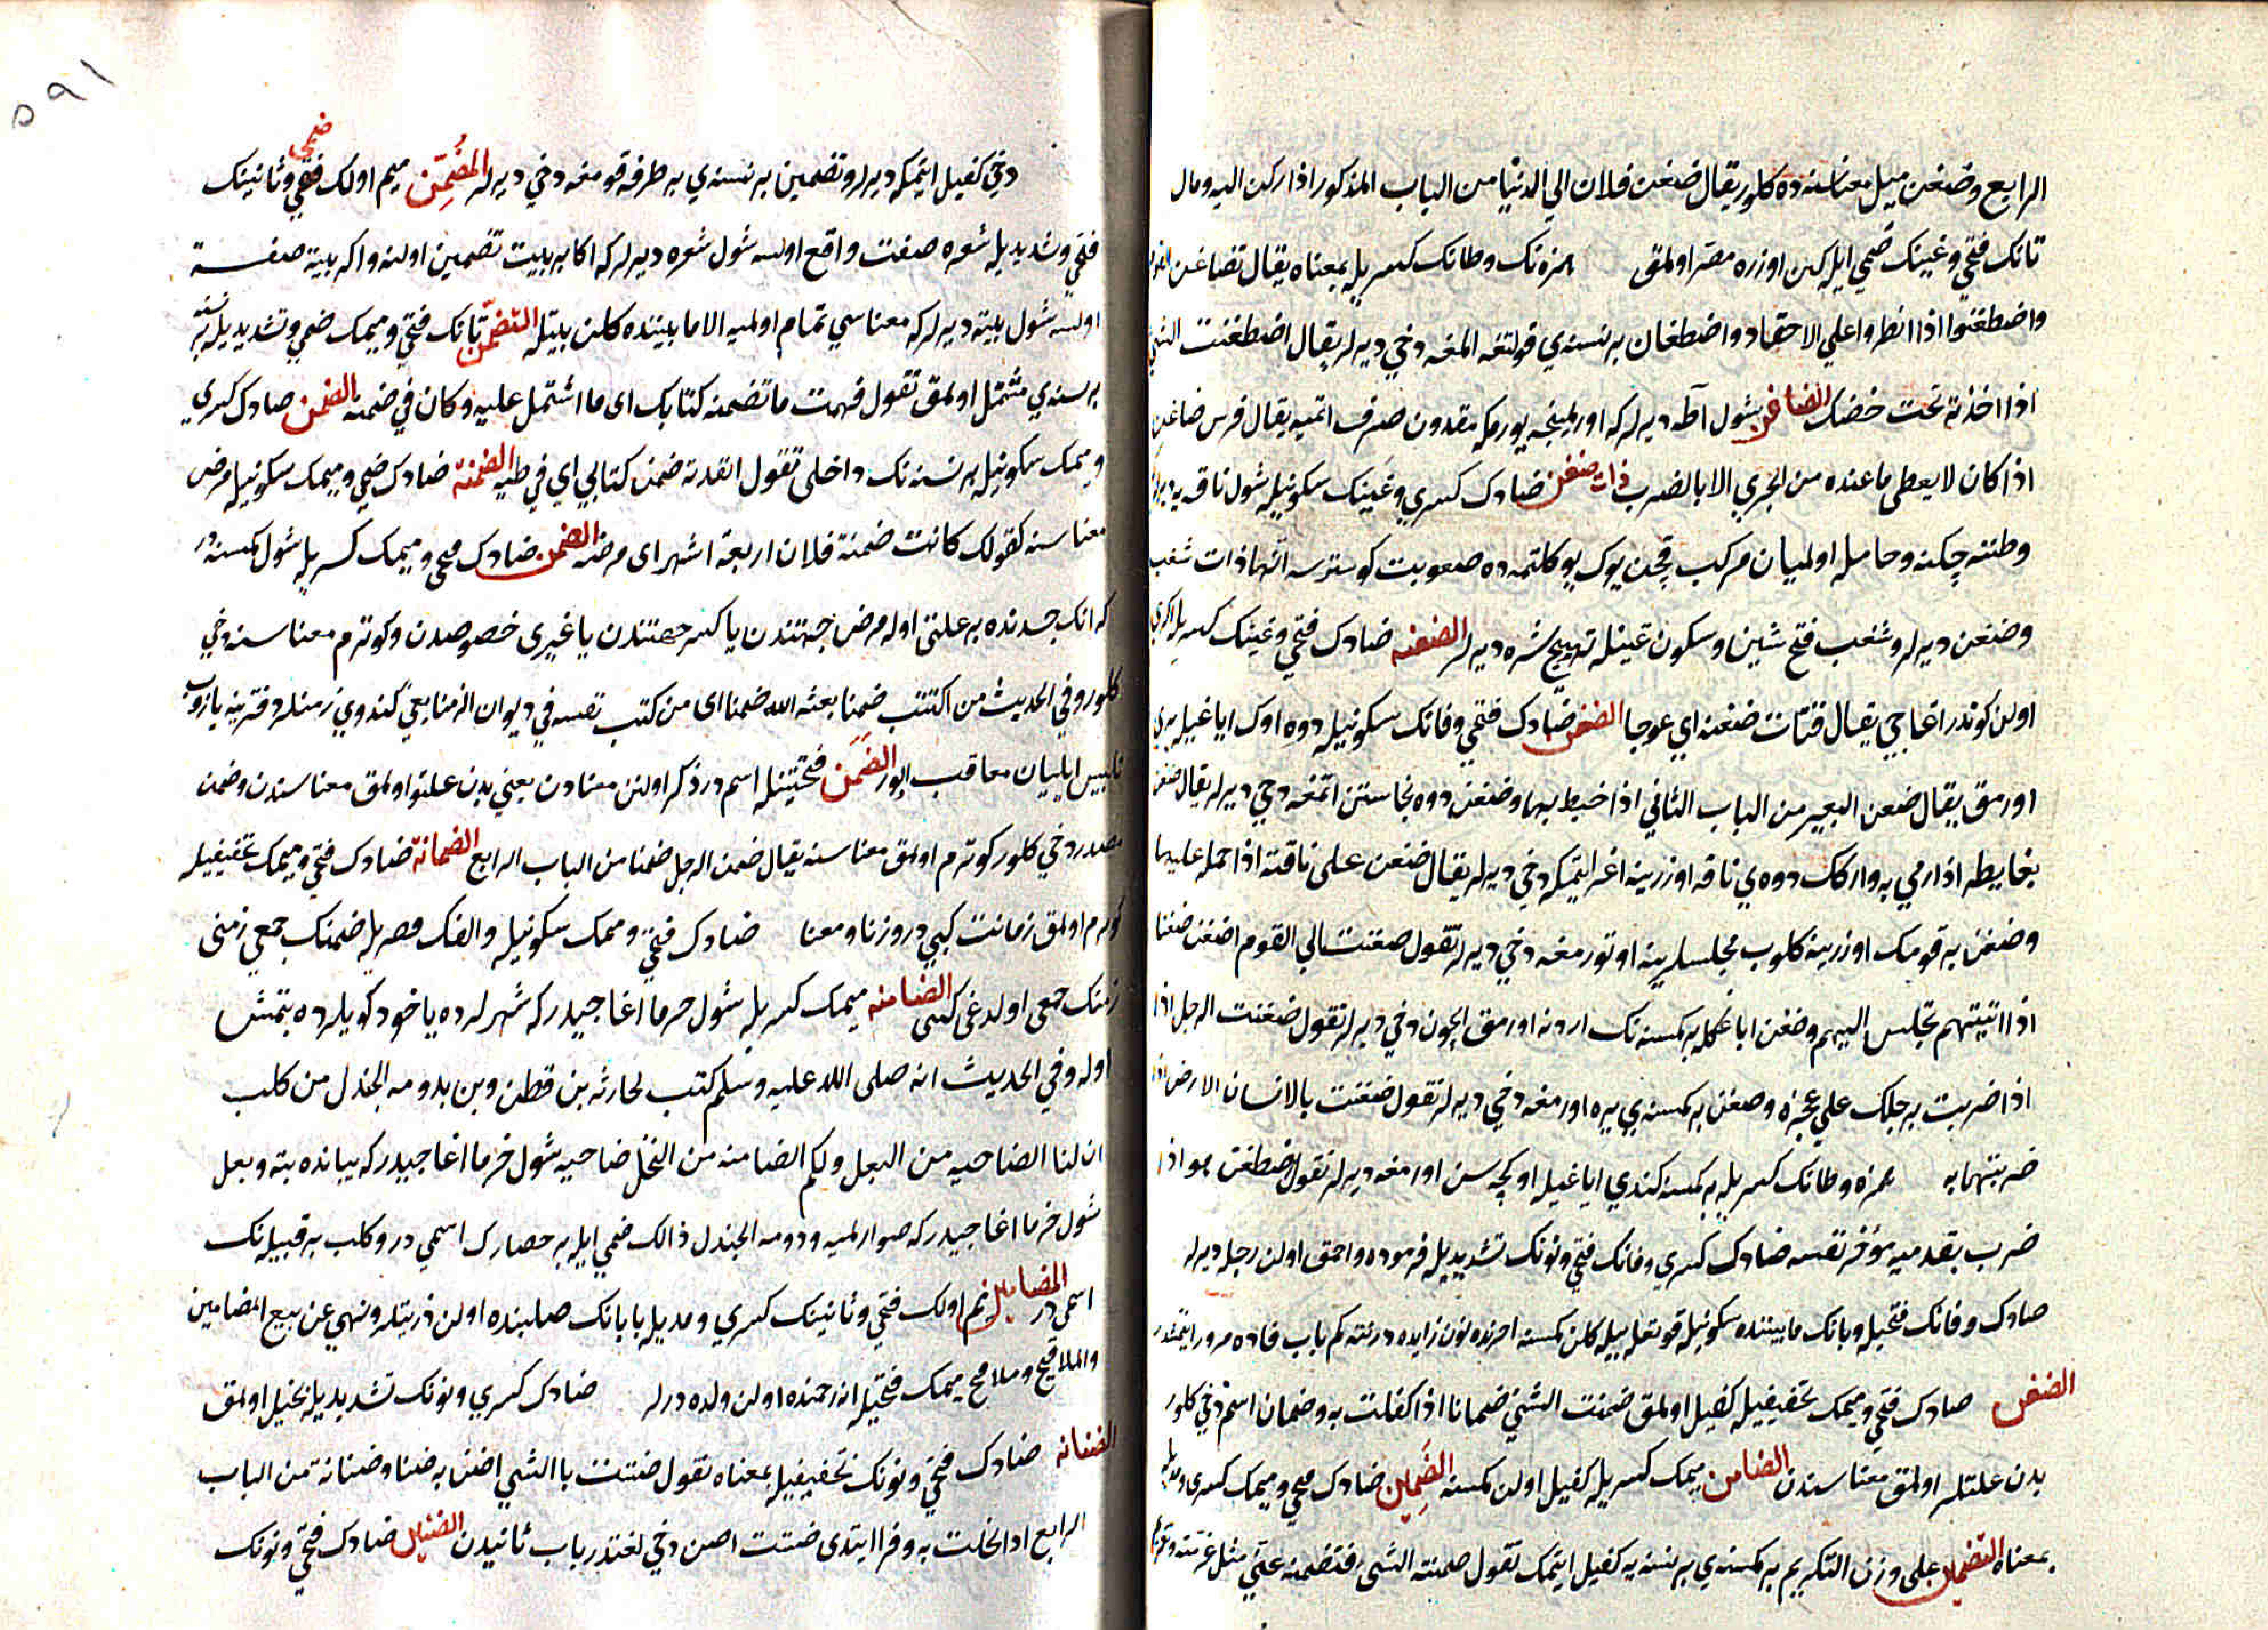 الرابع وضغن ميل معناسنه ده كلور يقال ضغن فلان الي الدنيا من الباب المذكور اذا ركن اليه ومال
تانك فتحي وغينك ضمي ايله كين اوزره مصر اولمق همزه نك وطانك كسريله بمعناه يقال تضاغن
واضطغنوا اذا انطروا علي الاحقاد واضطغان بر نسنه ي قولتغه المغه دخي ديرلر يقال اضطغنت الشئ
اذا اخذته تحت حضنك الضاغن شول آطه ديرلر كه اورلمينجه يورمكه مقدون صرف اتميه يقال فرس ضاغن
اذا كان لا يعطى ما عنده من الجري الا بالضرب ذات ضغن ضادك كسري وغينك سكونيله شول ناقه يه
وطننه چكنه وحامله اولميان مركب قچن يوك يوكلتمه ده صعوبت كوسترسه انها ذات شغب
وضغن ديرلر وشغب فتح شين وسكون غينله تهييج شره ديرلر الضغنه ضادك فتحي وغينك كسريله اكري
اولن كوندر اغاجي يقال قناة ضغنه اي عوجا الضفن ضادك فتحي وفانك سكونيله دوه اوك اياغيله يري
اورمق يقال ضفن البعير من الباب الثاني اذا خبط بها وضفن دوه نجاستن اتمغه دخي ديرلر يقال ضفن
بغايطه اذا رمي به وارككك دوه ي ناقه اوزرينه اغر ايتمكه دخي ديرلر يقال ضفن على ناقته اذا حمله عليها
وضفن بر قومك اوزرينه كلوب مجلسلرينه اوتورمغه دخي ديرلر تقول ضفنت الي القوم اضفن ضفنا
اذا اتيتهم تجلس اليهم وضفن اياغكله بر كمسنه نك اردنه اورمق ايچون دخي ديرلر تقول ضفنت الرجل اذا
اذا ضربت برجلك علي عجزه وضفن بر كمسنه ي يره اورمغه دخي ديرلر تقول ضفنت بالانسان الارض اذا
ضربتها به همزه وطانك كسريله بر كمسنه كندي اياغيله اوكچه سن اورمغه ديرلر تقول اضطغن هو اذا
ضرب بقدميه مؤخر نفسه ضادك كسري وفانك فتحي ونونك تشديديله فرموده واحمق اولن رجل ديرلر
ضادك وفانك فتحيله وبانك مابيننده سكونيله قونقله بيله كلن كمسنه اخرنده نون زايده درنته كم باب فاده مرور ايتمشدر
الضفن ضادك فتحي وميمك تخفيفيله كفيل اولمق ضمنت الشئ ضمانا اذا كفلت به وضمان اسم دخي كلور
بدن علتلر اولمق معناسندن الضامن ميمك كسريله كفيل اولن كمسنه الضمين ضادك فتحي وميمك كسري ومديله
بمعناه التضمين علي وزن التكريم بر كمسنه ي بر نسنه يه كفيل ايتمك تقول ضمنته الشئ فتضمنه عني مثل غرمته
١٩٥
دخي كفيل ايتمكه ديرلر وتضمين بر نسنه ي بر طرفه قومغه دخي ديرلر المضمن ميم اولك ضمي وثانينك
فتحي وتشديديله شعره صفت واقع اولسه شول شعره ديرلر كه اكا بر بيت تضمين اولنه واكر بيته صفت
اولسه شول بيته ديرلر كه معناسي تمام اولميه الا مابيننده كلن بيتله التضمن تانك فتحي وميمك ضمي وتشديديله بر نسنه
بر نسنه ي مشتمل اولمق تقول فهمت ما تضمنه كتابك اى ما اشتمل عليه وكان في ضمنه الضمن ضادك كسرى
وميمك سكونيله بر نسنه نك داخلي تقول انقدته ضمن كتابي اي في طيه الضمنة ضادك ضمي وميمك سكونيله مرض
معناسنه كقولك كانت ضمنة فلان اربعة اشهر اى مرضه الضمن ضادك فتحي وميمك كسريله شول كمسنه در
كه انك جسدنده بر علتى اوله مرض جهتندن يا كسر جهتندن يا غيرى خصوصدن وكوترم معناسنه دخي
كلور وفي الحديث من اكتتب ضمنا بعثه الله ضمنا اى من كتب نفسه في ديوان الزمنا يعني كندوي زمنلر دفترينه يازوب
الضمن فتحتينله اسمدر ذكر اولنن معنادن يعني بدن علتلو اولمق معناسندن وضمن
مصدر دخي كلور كوترم اولمق معناسنه يقال ضمن الرجل ضمنا من الباب الرابع الضمانة ضادك فتحي وميمك تخفيفيله
كوترم اولمق زمانت كبي در وزنا ومعنا ضادك فتحي وميمك سكونيله والفك قصريله ضمنك جمعي زمنى
زمنك جمعى اولدغى كبى الضامنه ميمك كسريله شول خرما اغاجيدر كه شهرلرده ياخود كويلرده بتمش
اوله وفي الحديث انه صلى الله عليه وسلم كتب لحارثه بن قطن وبن بدومه الجندل من كلب
ان لنا الضاحيه من البعل ولكم الضامنه من النخل ضاحيه شول خرما اغاجيدر كه بيانده بته وبعل
شول خرما اغاجيدر كه صوارلميه ودومه الجندل ذالك ضمي ايله بر حصارك اسمي در وكلب بر قبيله نك
اسمى در المضامين ميم اولك فتحي وثانينك كسري ومديله بابانك صلبنده اولن ذريتلر ونهي عن بيع المضامين
والملاقيح وملاقيح ميمك فتحيله انه رحمنده اولن ولده درلر ضادك كسري ونونك تشديديله بخيل اولمق
الضنانه ضادك فتحي ونونك تخفيفيله بمعناه تقول ضننت با الشئ اضن به ضنا وضنانة من الباب
الرابع اذا بخلت به وفرا ايتدى ضننت اضن دخي لغتدر باب ثانيدن الضنين ضادك فتحي ونونك